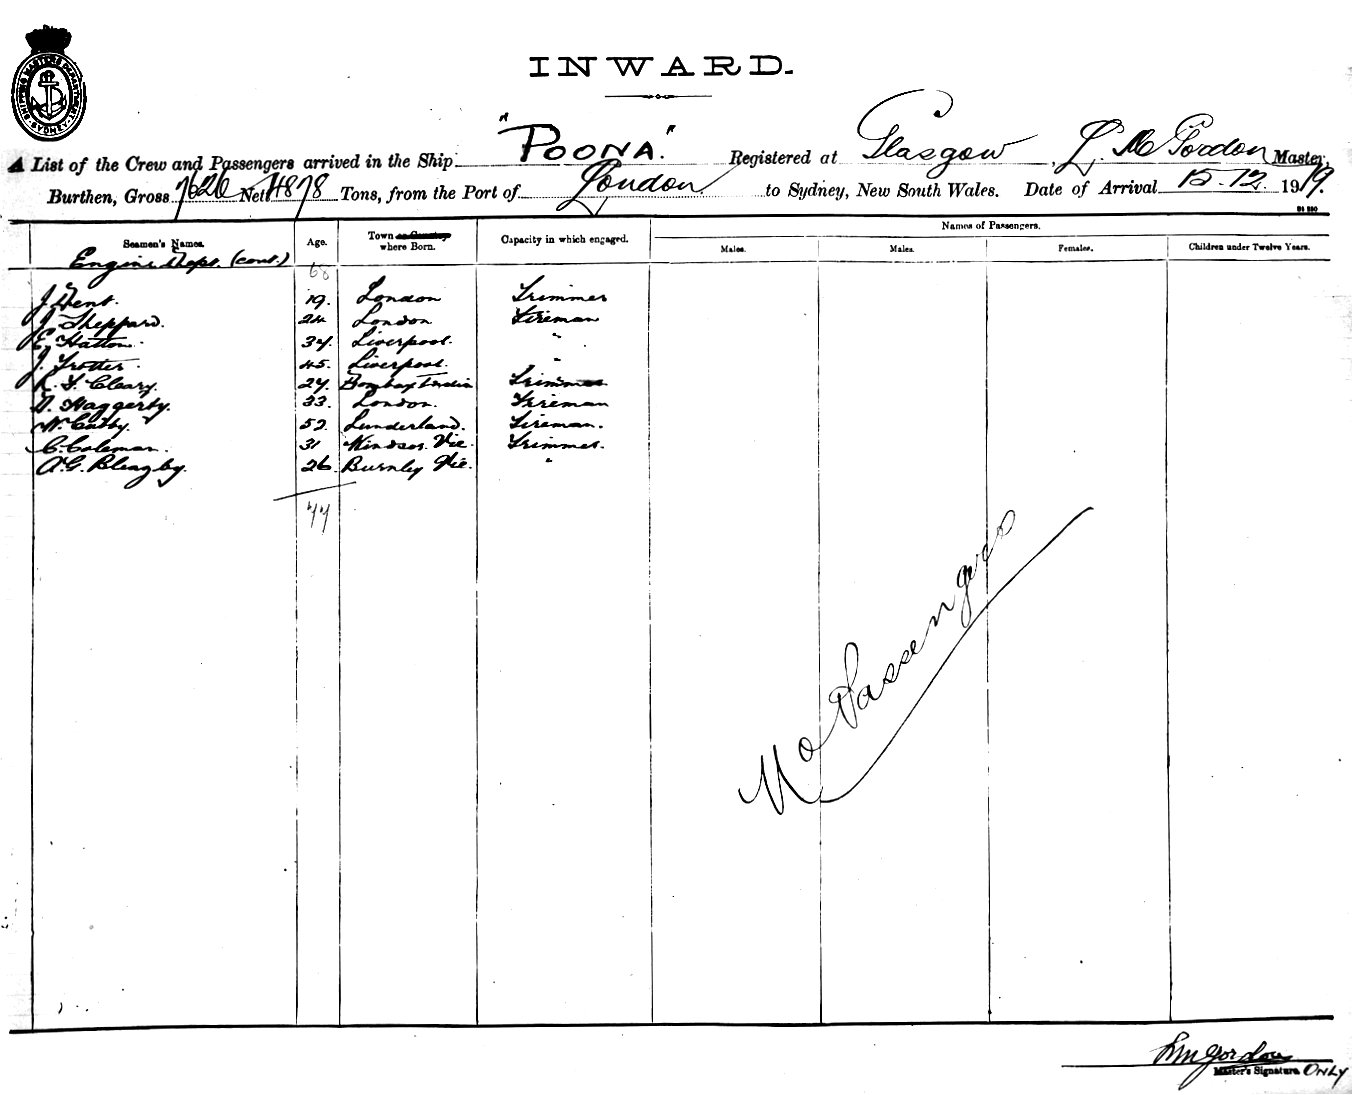 SHIPPING MASTERS DEPARTMENT SYDNEY
INWARD.
A List of the Crew and Passengers arrived in the Ship "POONA". Registered at Glasgow, L. M Gordon Master,
Burthen, Gross 7626 Net 4878 Tons, from the Port of London to Sydney, New South Wales. Date of Arrival 15.12. 1919.
Seamen's Names. Age. Town or Country where Born. Capacity in which engaged. Names of Passengers.
Males. Males. Females. Children under Twelve Years.
Engine Dept. (cont.) 68
J. Dent. 19. London Trimmer
J. Sheppard. 24 London Fireman
E. Hatton. 34. Liverpool. "
J. Trotter. 45. Liverpool. "
L. T. Cleary. 27. Bombay India Trimmer
D. Haggerby. 33. London. Fireman
W. Catby. 52. Sunderland. Fireman.
C. Coleman. 31 Windsor Vic. Trimmer.
A. G. Bleazby. 26. Burnley Vic. "
77
No Passengers
LM Gordon
Master's Signature ONLY